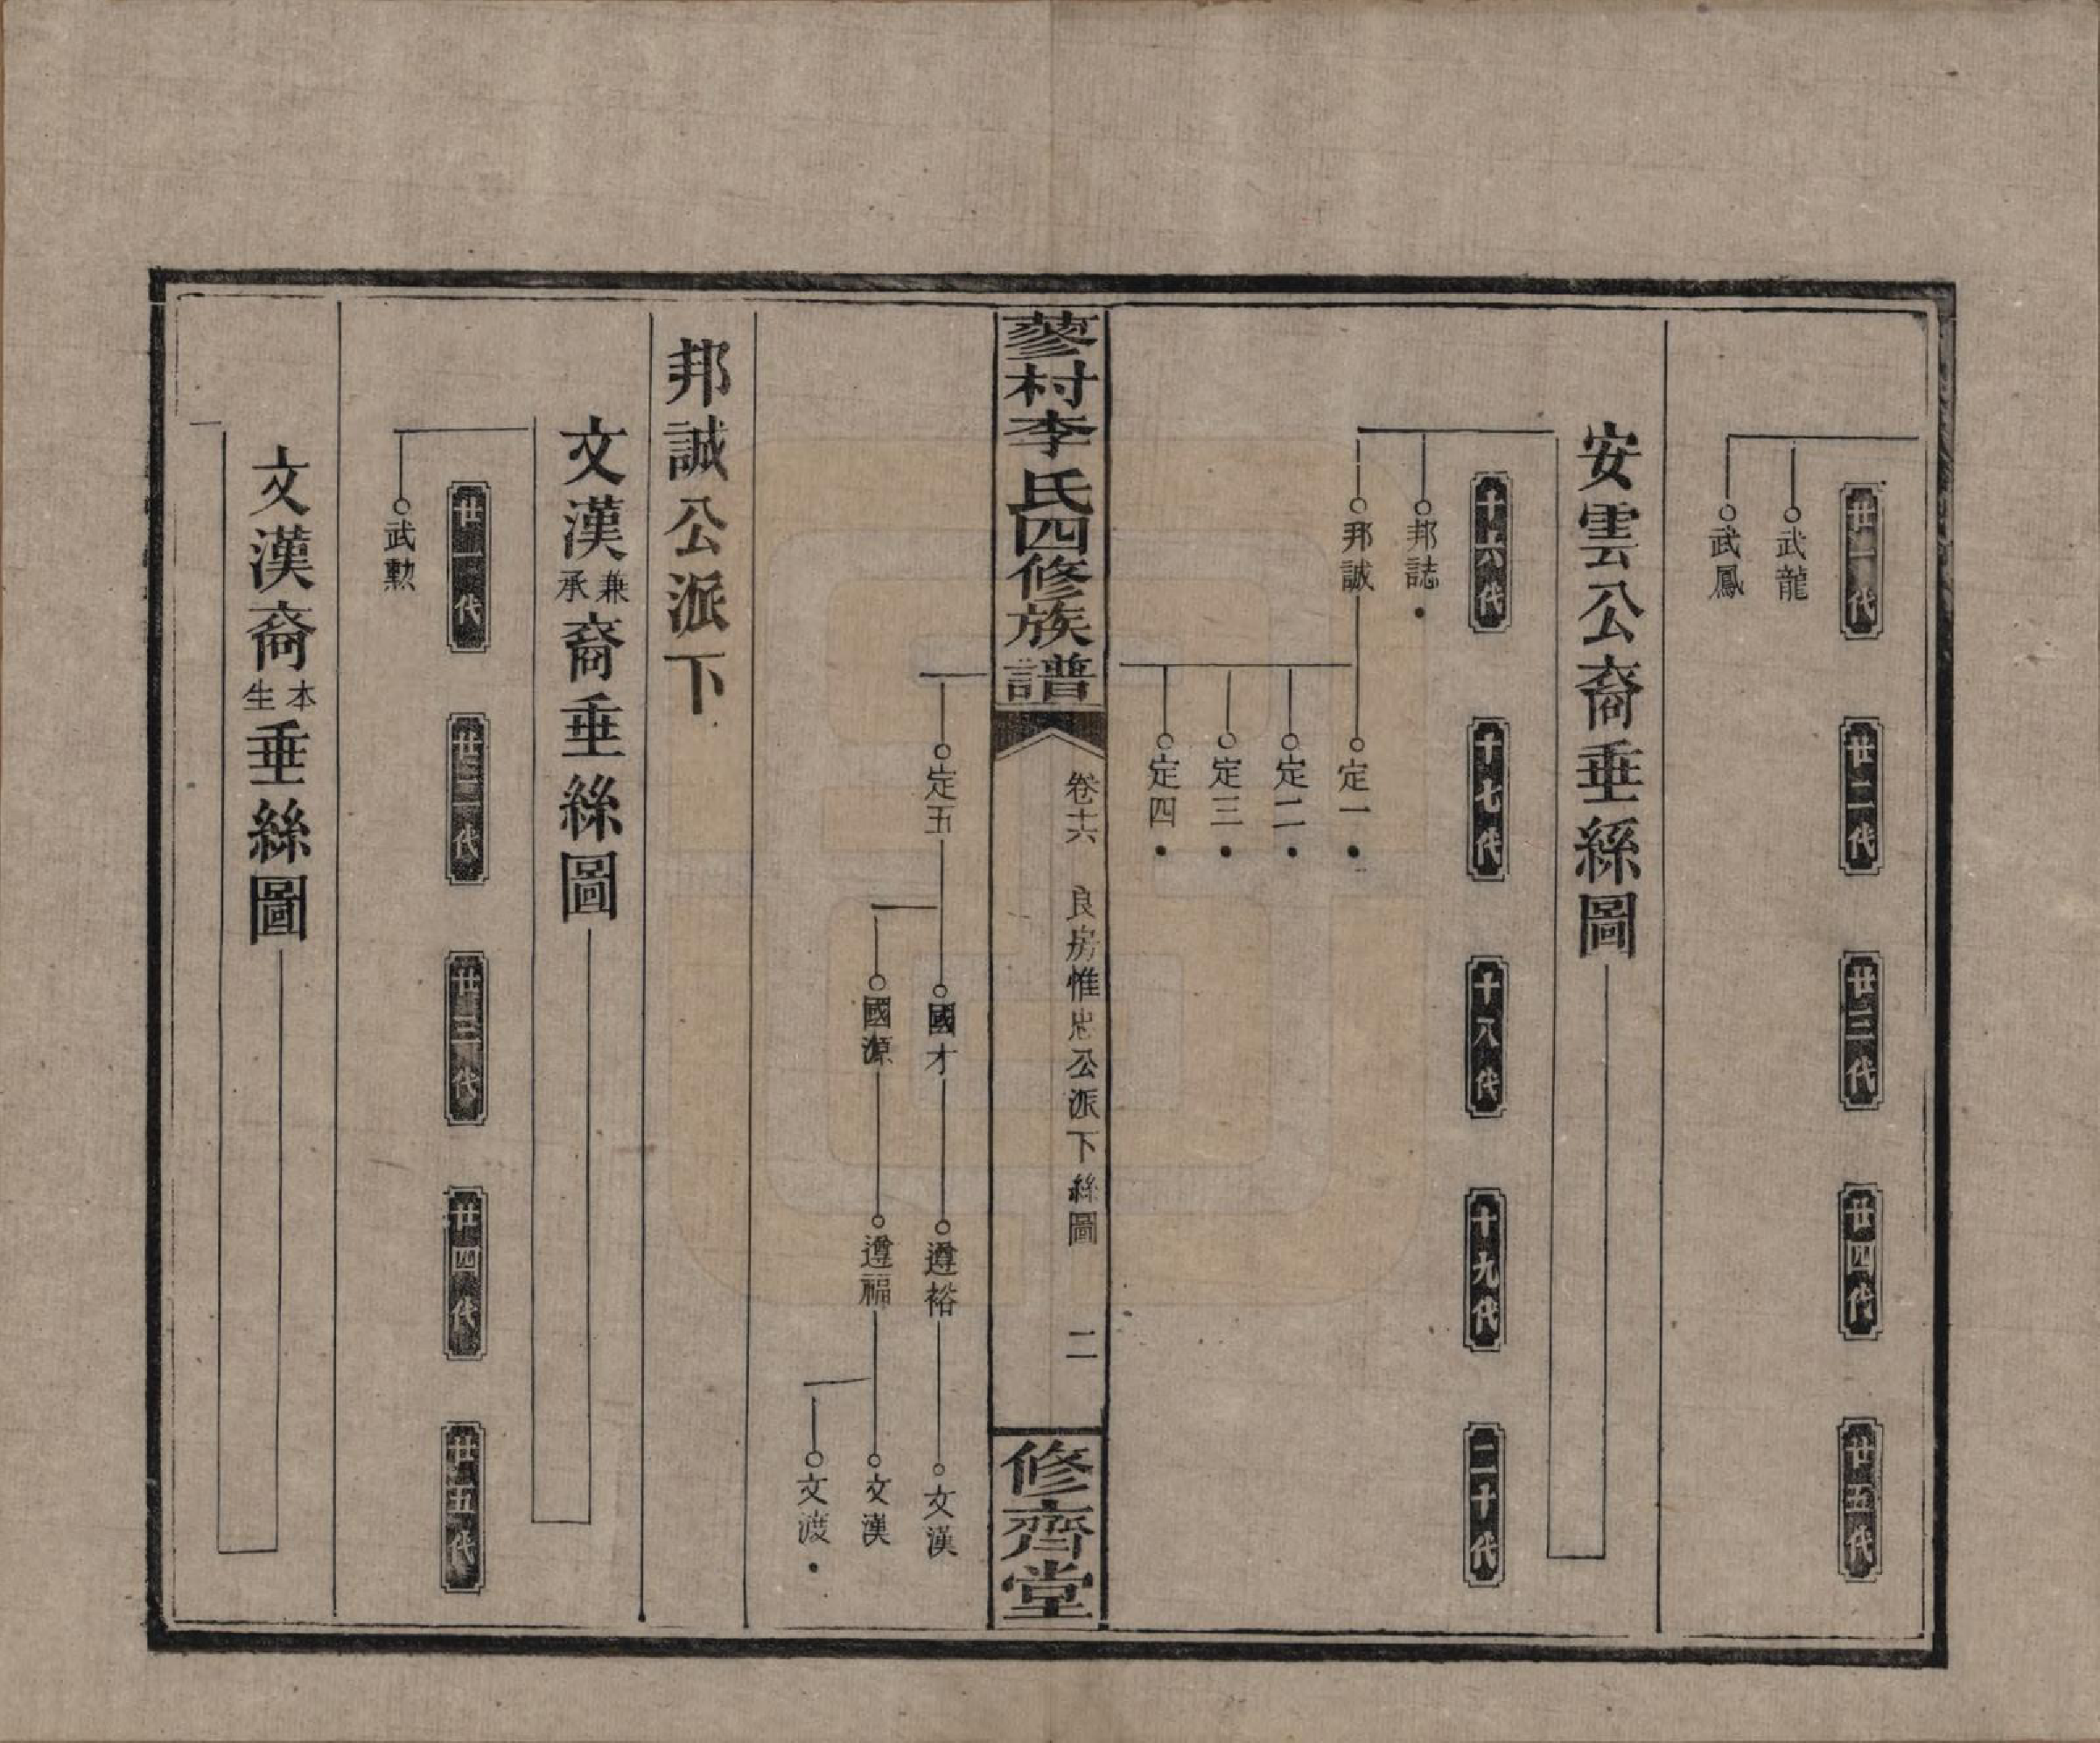 廿一代
廿二代
廿三代
廿四代
廿五代
武龍
武鳳
安雲公裔垂絲圖
十六代
十七代
十八代
十九代
二十代
邦誌
邦誠
定一
定二
定三
定四
蓼村李氏四修族譜
卷十六 良房惟忠公派下絲圖 二
修齊堂
定五
國才
遵裕
文漢
國源
遵福
文漢
文渡
邦誠公派下
文漢兼承裔垂絲圖
廿一代
廿二代
廿三代
廿四代
廿五代
武勲
文漢裔本生垂絲圖